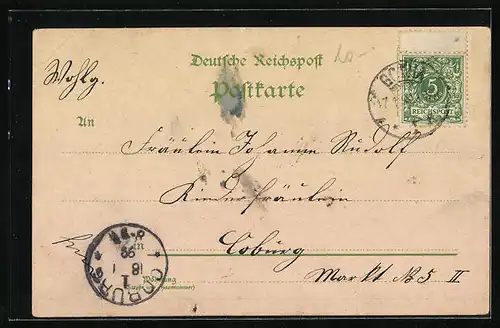 Deutsche Reichspost
Postkarte
Wohlg.
An
5
REICHSPOST
Fräulein Johanne Rudolf
Kinderfräulein
Coburg
Markt No 5 II
COBURG
18 1
1
Wohnung